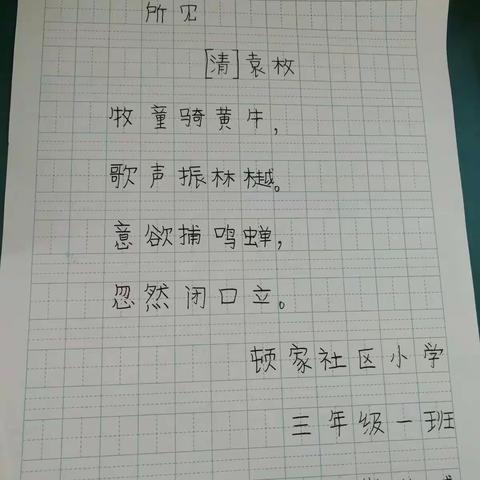 所见
[清]袁枚
牧童骑黄牛,
歌声振林樾。
意欲捕鸣蝉,
忽然闭口立。
顿家社区小学
三年级一班